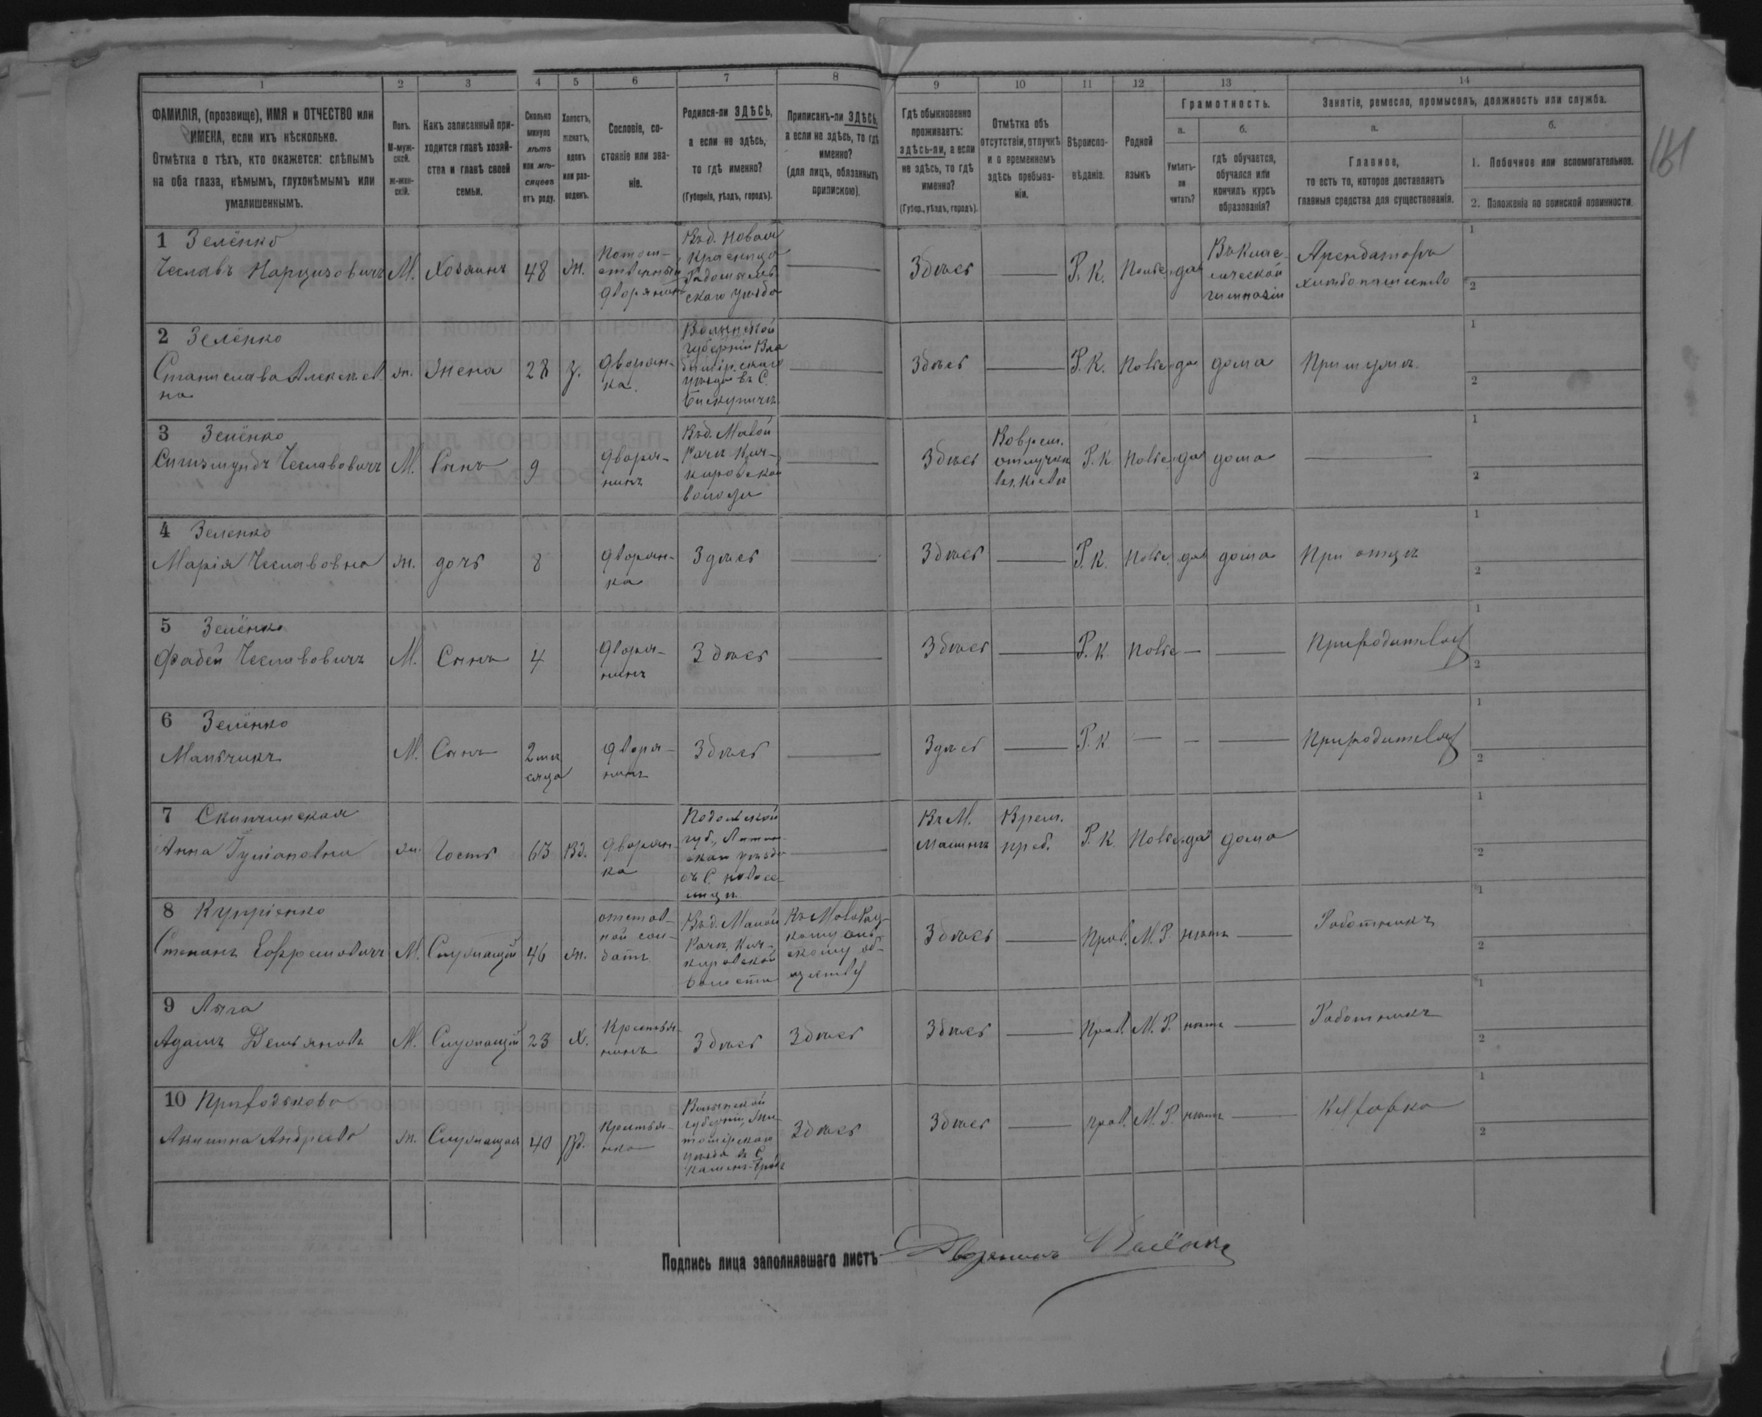 1 2 3 4 5 6 7 8 9 10 11 12 13 14
ФАМИЛІЯ, (прозвище), ИМЯ и ОТЧЕСТВО или
ИМЕНА, если ихъ нѣсколько.
Отмѣтка о тѣхъ, кто окажется: слѣпымъ
на оба глаза, нѣмымъ, глухонѣмымъ или
умалишеннымъ.
Полъ.
М-муж-
ской.
ж-жен-
скій.
Какъ записанный при-
ходится главѣ хозяй-
ства и главѣ своей
семьи.
Сколько
минуло
лѣтъ
или мѣ-
сяцевъ
отъ роду.
Холостъ,
женатъ,
вдовъ
или раз-
веденъ.
Сословіе, со-
стояніе или зва-
ніе.
Родился-ли ЗДѢСЬ,
а если не здѣсь,
то гдѣ именно?
(Губернія, уѣздъ, городъ).
Приписанъ-ли ЗДѢСЬ,
а если не здѣсь, то гдѣ
именно?
(для лицъ, обязанныхъ
припискою).
Гдѣ обыкновенно
проживаетъ:
здѣсь-ли, а если
не здѣсь, то гдѣ
именно?
(Губер., уѣздъ, городъ).
Отмѣтка объ
отсутствіи, отлучкѣ
и о временномъ
здѣсь пребыва-
ніи.
Вѣроиспо-
вѣданіе.
Родной
языкъ
Грамотность.
а.
Умѣетъ-
ли
читать?
б.
гдѣ обучается,
обучался или
кончилъ курсъ
образованія?
Занятіе, ремесло, промыселъ, должность или служба.
а.
Главное,
то есть то, которое доставляетъ
главныя средства для существованія.
б.
1. Побочное или вспомогательное.
2. Положеніе по воинской повинности.
161
1 Зелёнко
Чеславъ Нарцизовичъ
М.
Хозяинъ
48
Ж.
Потом-
ственный
дворянинъ
Въ д. Новая
Радомысль-
скаго уѣзда
Здѣсь
Р. К.
Польс.
да
Въ Клас-
сической
гимназіи
Арендаторъ
хлѣбопашество
1
2
2 Зелёнко
Станислава Алексѣев
на
ж.
Жена
28
З.
дворян-
ка.
Волынской
губерніи Вла
димір. скаго
уѣзда въ С.
Бискупичъ
Здѣсь
Р. К.
Польс
да
дома
При мужѣ
1
2
3 Зелёнко
Сигизмундъ Чеславовичъ
М.
Сынъ
9
дворя-
нинъ
Въ д. Малой
Рачѣ Кич-
кировской
волости
Здѣсь
Во врем.
отлучкѣ
въ г. Кіевѣ
Р. К
Польс
да
дома
1
2
4 Зеленко
Марія Чеславовна
ж.
дочь
8
дворян-
ка
Здѣсь
Здѣсь
Р. К.
Польс
да
дома
При отцѣ
1
2
5 Зелёнко
Фадей Чеславовичъ
М.
Сынъ
4
дворя-
нинъ
Здѣсь
Здѣсь
Р. К
Польс
При родителях
1
2
6 Зелёнко
Мальчикъ
М.
Сынъ
2 мѣ
сяца
дворя-
нинъ
Здѣсь
Здѣсь
Р. К
При родителях
1
2
7
Анна
ж.
Гость
63
Вд.
дворян
ка
Подольской
губ.
скаго уѣзда
въ С.
Въ М.
Малинъ
Врем.
преб.
Р. К
Польс
да
дома
1
2
8 Купріенко
Степанъ Ефремовичъ
М.
Служащій
46
ж.
отстав-
ной сол-
датъ
Въ д. Малой
Рачѣ, Кич-
кировской
волости
Здѣсь
Прав.
М. Р.
нѣтъ
Работникъ
1
2
9 Лыга
Адамъ Демьяновъ
М.
Служащій
23
Х.
Крестья-
нинъ
Здѣсь
Здѣсь
Здѣсь
Прав.
М. Р.
нѣтъ
Работникъ
1
2
10 Приходьково
Акилина Андреева
ж.
Служащая
40
Вд.
Крестья-
нка
Волынской
губерніи, Жи-
томірскаго
уѣзда въ С.
Здѣсь
Здѣсь
прав.
М. Р.
нѣтъ
Кухарка
1
2
Подпись лица заполнявшаго листъ
Дворянинъ Зелёнко